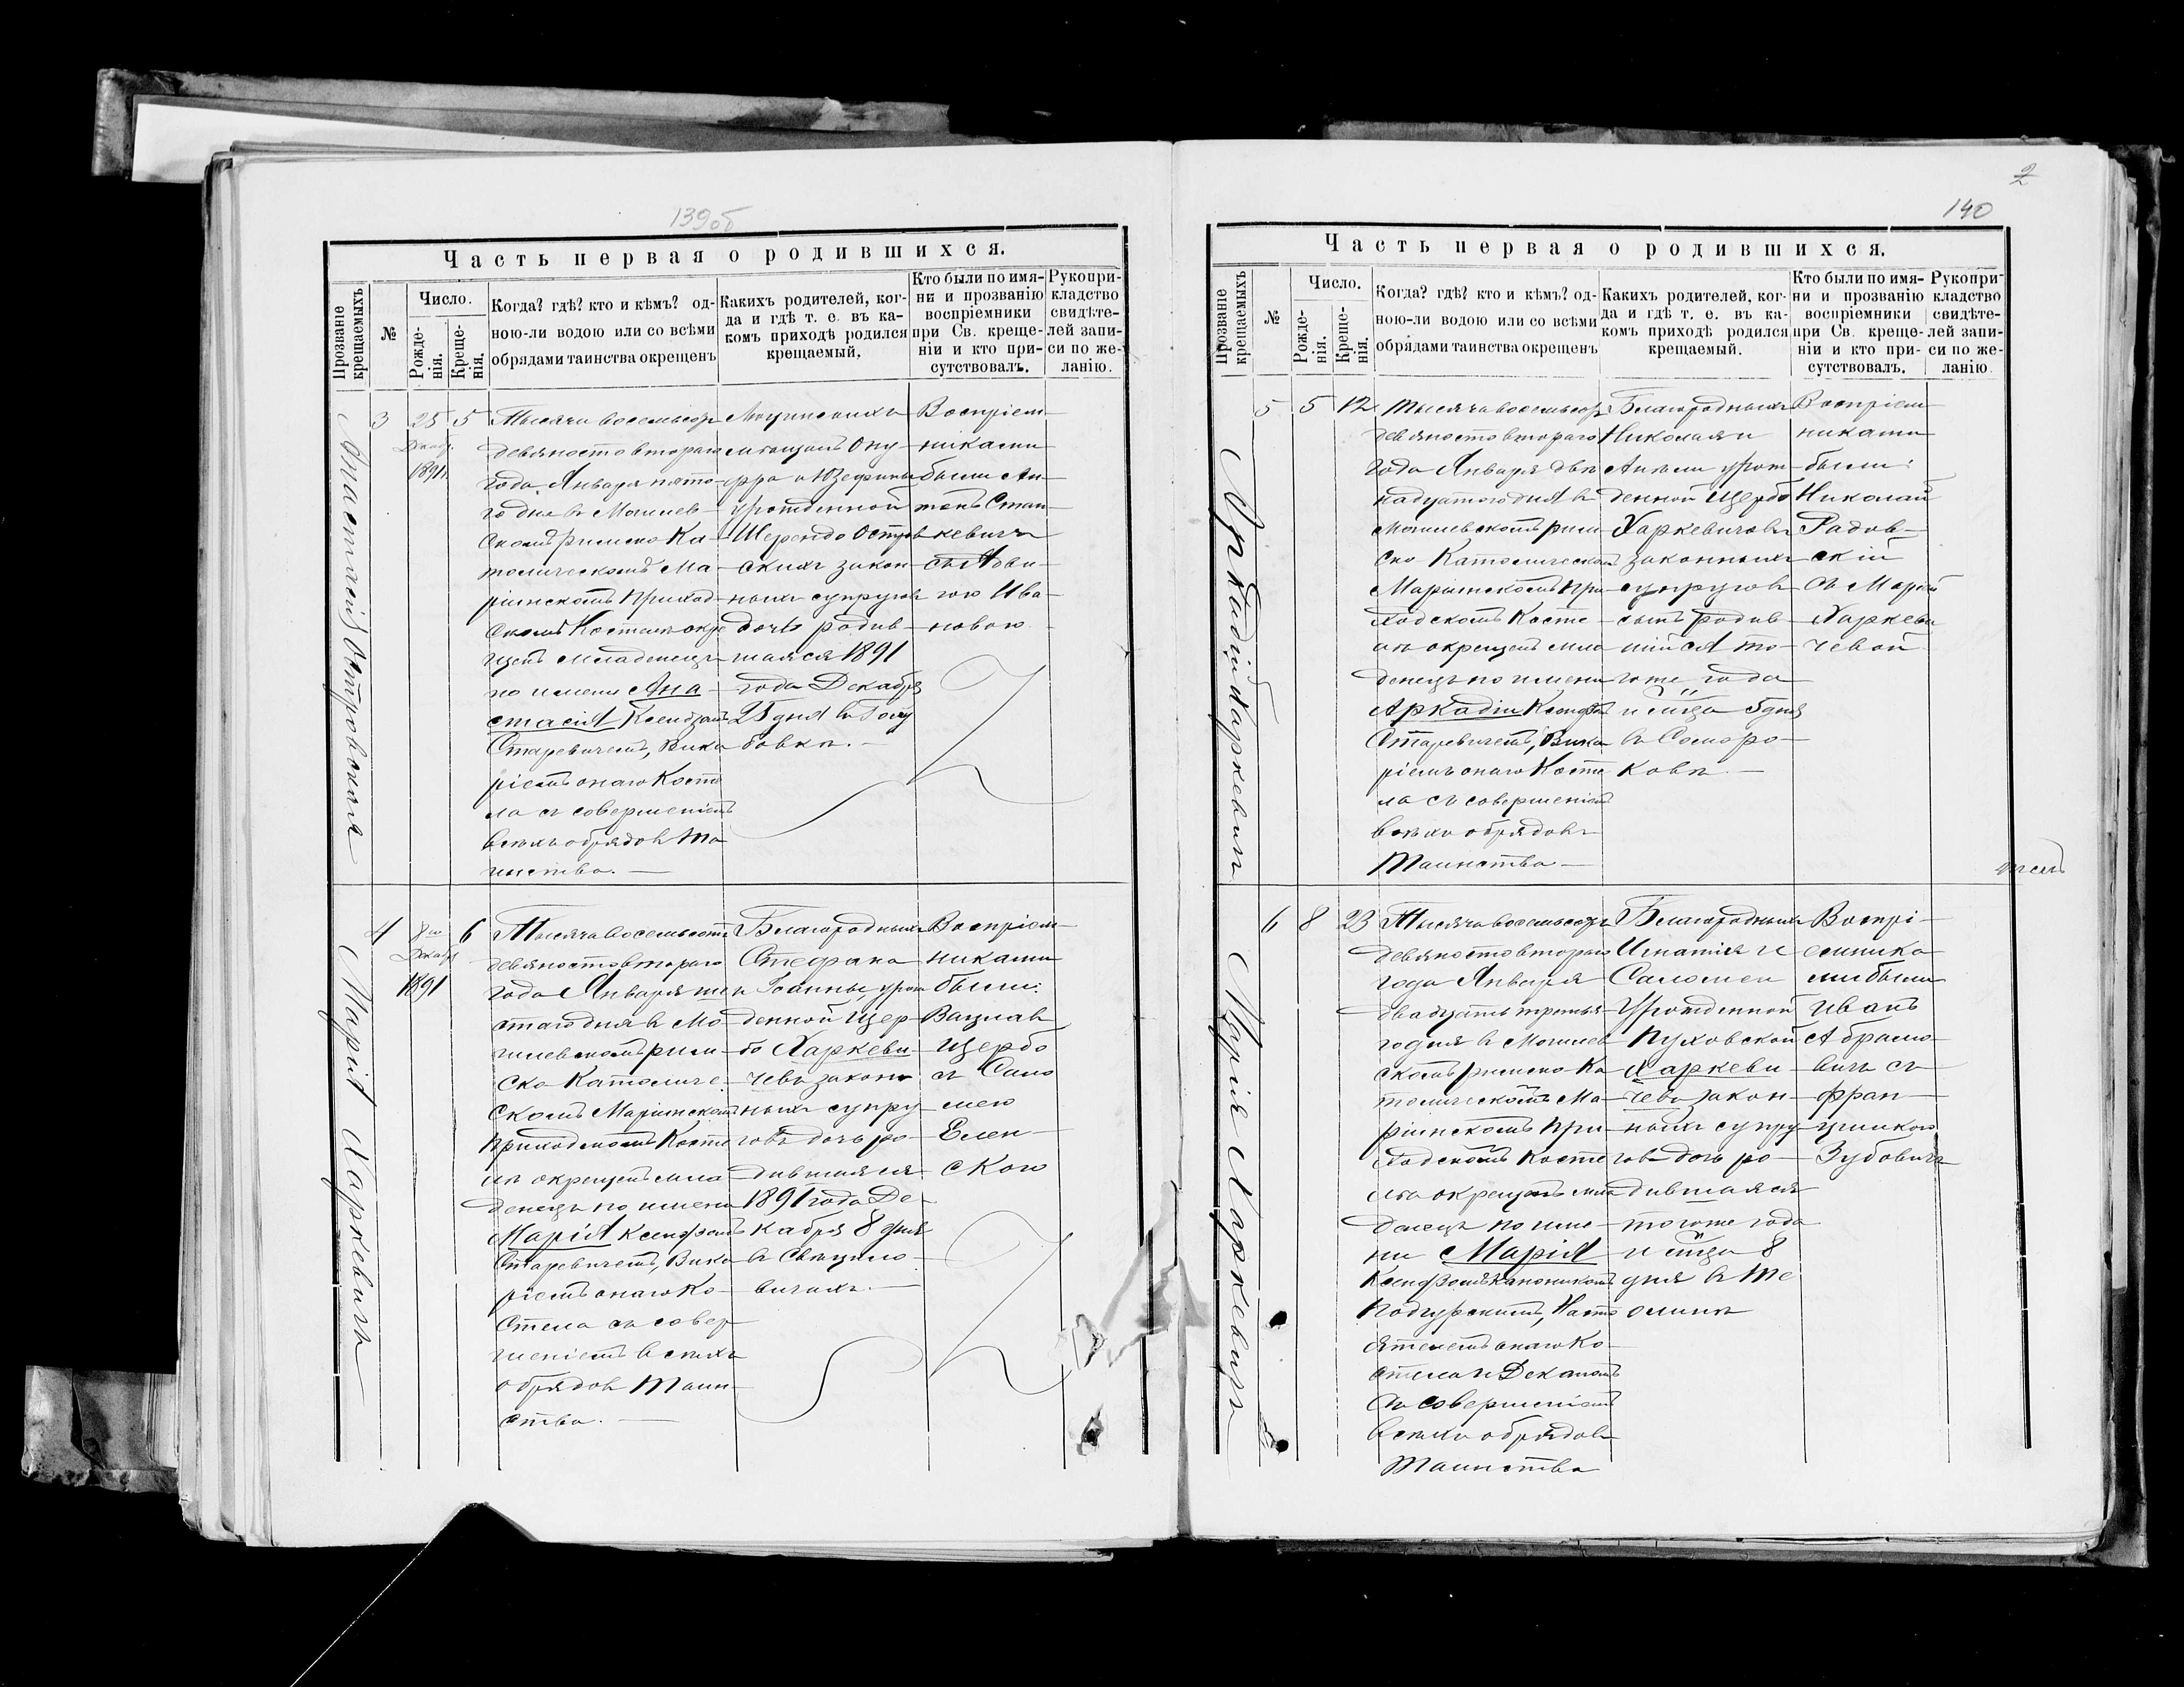 139об
Часть первая о родившихся.
Прозваніе крещаемыхъ
№
Число.
Рожде-
нія.
Креще-
нія.
Когда? гдѣ? кто и кѣмъ? од-
ною-ли водою или со всѣми
обрядами таинства окрещенъ
Какихъ родителей, ког-
да и гдѣ т. е. въ ка-
комъ приходѣ родился
крещаемый.
Кто были по имя-
ни и прозванію
воспріемники
при Св. креще-
ніи и кто при-
сутствовалъ.
Рукопри-
кладство
свидѣте-
лей запи-
си по же-
ланію.
Анастасія Островская
3
25
Декабр.
1891
5
Тысяча восемьсотъ
девяносто втораго
года Января пято-
го дня въ Могилев-
скомъ Римско Ка-
толическомъ Ма-
ріинскомъ приход-
скомъ Костелѣ окре
щенъ младенецъ
по имени Ана-
стасія Ксендзомъ
Старевичемъ, Вика
ріемъ онаго Косте
ла съ совершеніемъ
всѣхъ обрядовъ Та
инства.
мѣщанъ Ону-
фра и Юзефины
урожденной
Шерендо Остров
скихъ закон-
ныхъ супруговъ
дочь родив-
шаяся 1891
года Декабря
25 дня въ Голу
бовкѣ.
Воспріем-
никами
были Ан-
тонъ Стан-
кевичъ
съ
гою Ива-
новою
4
8го
Декабр
1891
6
Марія Харкевичъ
Тысяча восемьсотъ
девяносто втораго
года Января ше
стаго дня въ Мо-
гилевскомъ Рим-
ско Католиче-
скомъ Маріинскомъ
приходскомъ Косте
лѣ окрещенъ мла
денецъ по имени
Марія Ксендзомъ
Старевичемъ, Вика
ріемъ онаго Ко-
стела съ совер
шеніемъ всѣхъ
обрядовъ Таин-
ства.
Благородныхъ
Стефана
и Іоанны, урож
денной Щер-
бо Харкеви-
чевъ закон
ныхъ супру
говъ дочь ро-
дившаяся
1891 года Де-
кабря 8 дня
въ Свѣцило-
вичахъ.
Воспріем-
никами
были:
Вацлавъ
Щербо
съ Сало
меею
Елен-
скою
2
140
Часть первая о родившихся.
Прозваніе крещаемыхъ
№
Число.
Рожде-
нія.
Креще-
нія.
Когда? гдѣ? кто и кѣмъ? од-
ною-ли водою или со всѣми
обрядами таинства окрещенъ
Какихъ родителей, ког-
да и гдѣ т. е. въ ка-
комъ приходѣ родился
крещаемый.
Кто были по имя-
ни и прозванію
воспріемники
при Св. креще-
ніи и кто при-
сутствовалъ.
Рукопри-
кладство
свидѣте-
лей запи-
си по же-
ланію.
Аркадій Харкевичъ
5
5
12
Тысяча восемьсотъ
девяносто втораго
года Января двѣ
надцатого дня въ
Могилевскомъ Рим
ско Католическомъ
Маріинскомъ При
ходскомъ Косте
лѣ окрещенъ мла
денецъ по имени
Аркадій Ксендзомъ
Старевичемъ, Вика
ріемъ онаго Косте
ла съ совершеніемъ
всѣхъ обрядовъ
Таинства.
Благородныхъ
Николая и
Анели урож
денной Щербо
Харкевичовъ
законныхъ
супруговъ
сынъ родив-
шійся то-
гоже года
и м-ца 5 дня
въ Соморо-
ковѣ.
Воспріем-
никами
были:
Николай
Радов-
скій
съ Маріей
Харкеви
чевой
6
8
23
Марія Харкевичъ
Тысяча восемьсотъ
девяносто втораго
года Января
двадцать третья-
го дня въ Могилев
скомъ Римско Ка
толическомъ Ма-
ріинскомъ При-
ходскомъ Косте
лѣ окрещенъ мла
денецъ по име-
ни Марія
Ксендзомъ Каноникомъ
Подгурскимъ, Насто
ятелемъ онаго Ко-
стела и Деканомъ
съ совершеніемъ
всѣхъ обрядовъ
Таинства
Благородныхъ
Игнатія и
Саломеи
Урожденной
Пуховской
Харкеви
чевъ закон-
ныхъ супру-
говъ дочь ро-
дившаяся
тогоже года
и м-ца 8
дня въ Те
олинѣ
Воспрі-
емника
ми были
Иванъ
Абрамо-
вичъ съ
Фран-
цишкою
Зубовичъ